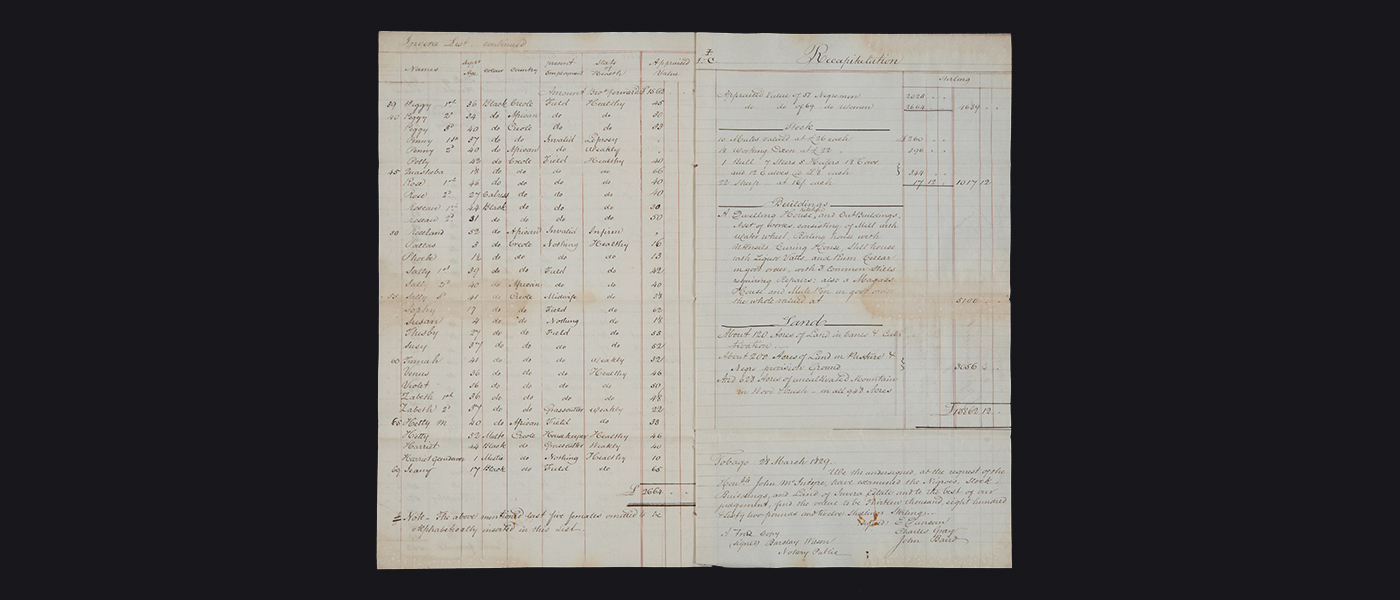 Invera List continued
Names Age Colour Country present Employment State of Health Appraised Value
Amount Bro't forward £
39 Peggy 1st 36 Black Creole Field Healthy 45
40 Peggy 2d 34 do African do do 50
Peggy 3d 40 do Creole do do 53
Penny 1st 57 do do Invalid Leprosy
Penny 2d 40 do African do Weakly
Polly 42 do Creole Field Healthy 40
45 18 do do do do 66
Rose 1st 46 do do do do 40
Rose 2d 27 do do do 40
Roseau 1st 44 Black do do do 30
Roseau 2d 31 do do do do 50
50 Roseland 52 do African Invalid Infirm
Pallas 5 do Creole Nothing Healthy 16
Phoebe 12 do do do do 13
Sally 1st 39 do do Field do 42
Sally 2d 40 do African do do 40
55 Sally 3d 41 do Creole Midwife do 28
Sophy 17 do do Field do 62
Susan 4 do do Nothing do 18
Thisby 27 do do Field do 58
Susy 37 do do do do 52
60 41 do do do Weakly 32
Venus 36 do do do Healthy 46
Violet 36 do do do do 50
Zabeth 1st 36 do do do do 48
Zabeth 2d 57 do do Grasscutter Weakly 22
65 Hetty M 40 do African Field do 38
Hetty 32 Creole Housekeeper Healthy 46
Harriet 44 Black do Grasscutter Weakly 40
Harriet 1 do Nothing Healthy 10
69 Jeany 17 Black do Field do 65
£ 2664
Note - The above mentioned last five females omitted to be
alphabetically inserted in this List
Recapitulation
Sterling
Appraised Value of 57 Negromen 2025
do do of 69 do Women 2664 4689
Stock
10 Mules valued at £26 each £260
18 Working Oxen at £22 396
1 Bull 7 Steers 8 Heifers 18 Cows
and 12 Calves @ £8 each 344
22 Sheep at 16/ each 17 12 1017 12
Buildings
A Dwelling House, and Out Buildings,
A set of Works, consisting of Mill with
Water wheel, Boiling house with
Utensils Curing House, Still house
with Liquor Vatts, and Rum Cellar
in good order, with 3 Common Stills
requiring Repairs; also a Magass
House and Mule Pen in good order
the whole valued at 5100
Land
About 120 Acres of Land in Canes & Cul-
tivation
About 200 Acres of Land in Pasture &
Negro provision Ground 3056
And 628 Acres of uncultivated Mountain
in Wood & Bush - in all 948 Acres
£13862 12
Tobago 28 March 1829.
We the undersigned, at the request of the
Honble John McIntyre, have examined the Negroes, Stock
Buildings, and Land of Invera Estate and to the best of our
judgement, find the value to be Thirteen thousand, eight hundred
& sixty two pounds and twelve Shillings Sterling.
Signed E. Duncan
Charles Gray
John Baird
A True Copy
(signed) Barclay Wason
Notary Public